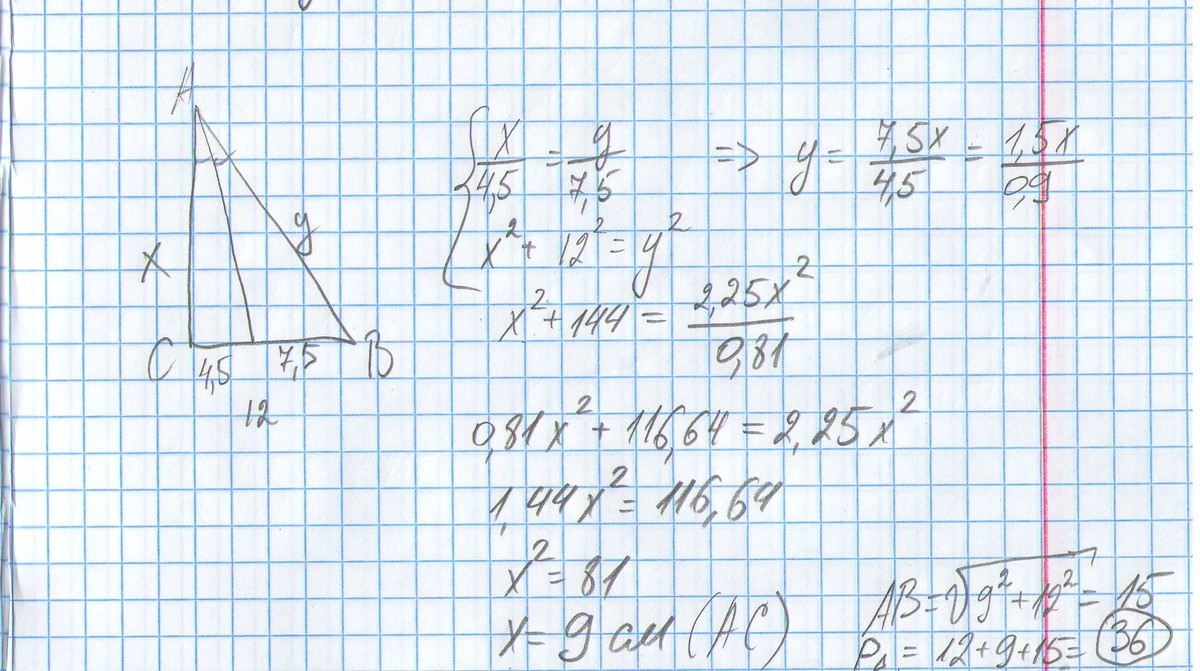 A
x
y
C
4,5
7,5
B
12
{ x/4,5 = y/7,5 => y = 7,5x/4,5 = 1,5x/0,9
x² + 12² = y²
x² + 144 = 2,25x²/0,81
0,81x² + 116,64 = 2,25x²
1,44x² = 116,64
x² = 81
x = 9 см (AC)
AB = √9² + 12² = 15
P△ = 12+9+15 = 36